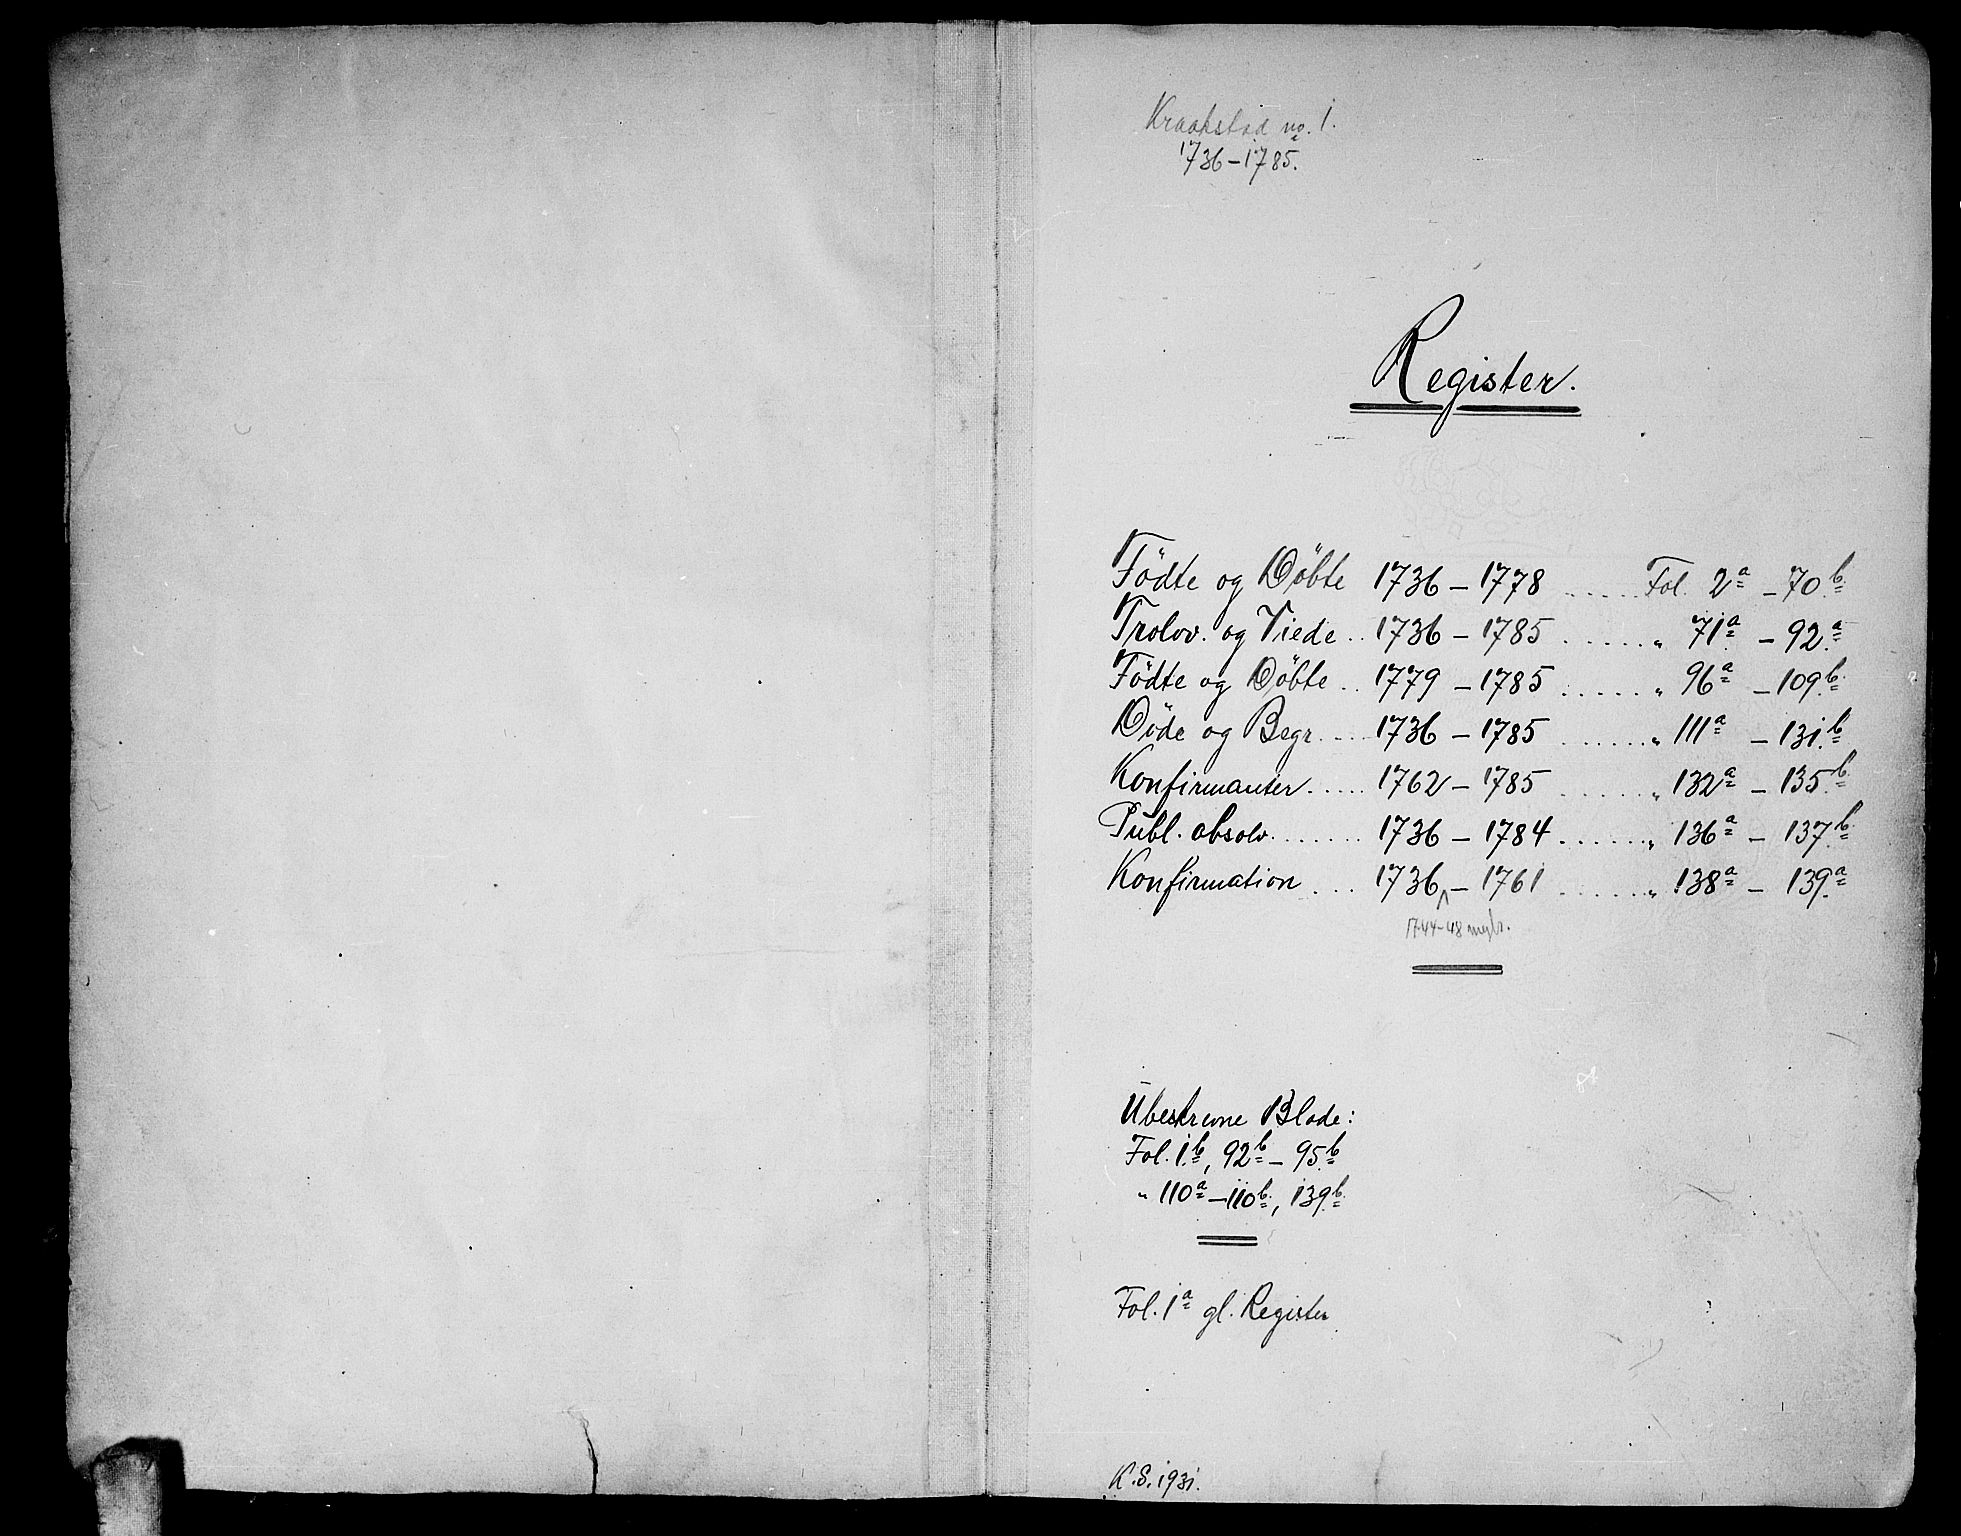 Kraakstad no. 1.
1736-1785.
Register.
Födte og Döbte 1736 - 1778 ...... Fol. 2a - 70b
Trolov. og Viede .. 1736 - 1785 ...... " 71a - 92a
Födte og Döbte .. 1779 - 1785 ...... " 96a - 109b
Döde og Begr. ... 1736 - 1785 ...... " 111a - 131b
Konfirmanter ..... 1762 - 1785 ...... " 132a - 135b
Publ. absolv. ...... 1736 - 1784 ...... " 136a - 137b
Konfirmation ... 1736 - 1761 ...... " 138a - 139a
1744-48 mglr.
Ubeskrevne Blade:
Fol. 1b, 92b - 95b
" 110a - 110b, 139b
Fol. 1a gl. Register
K.S. 1931.